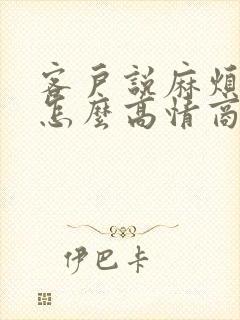 客戶說麻煩
怎麼高情商
伊巴卡